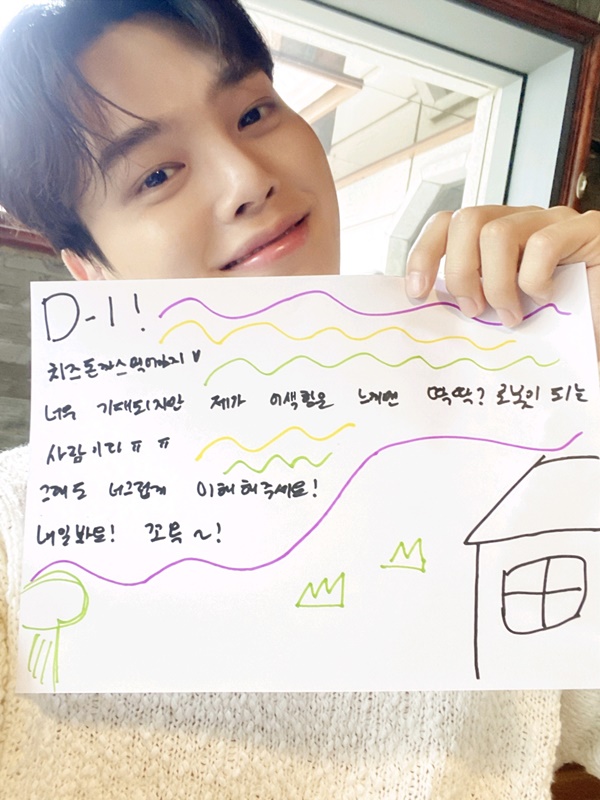 D-1!
치즈돈까스 먹어야지♥
너무 기대되지만 제가 어색함을 느끼면 딱딱? 로봇이 되는
사람이라 ㅠㅠ
그래도 너그럽게 이해해주세요!
내일봐요! 꼬옥~!